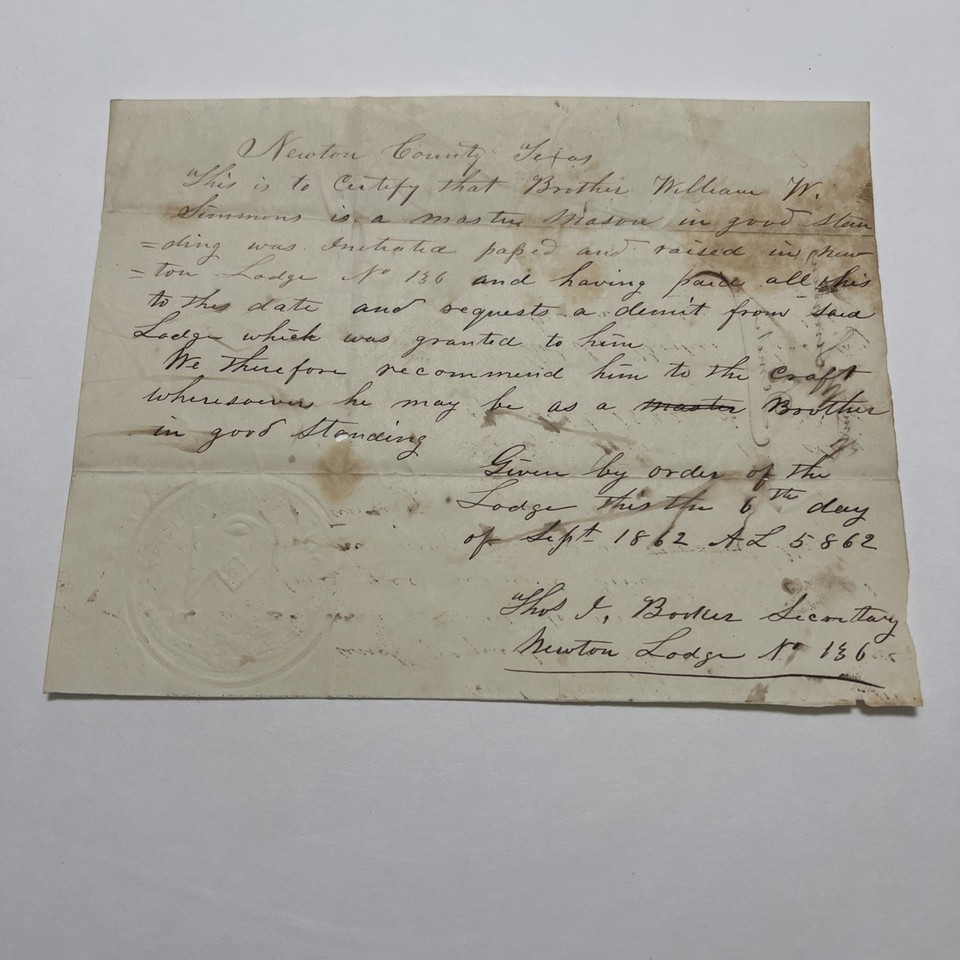 Newton County Texas
This is to Certify that Brother William W.
Simmons is a master Mason in good stan
=ding was Initiated passed and raised in New
=ton Lodge No 136 and having paid all his
to this date and requests a demit from said
Lodge which was granted to him
We therefore recommend him to the craft
wheresoever he may be as a master Brother
in good standing
Given by order of the
Lodge this the 6th day
of Sept 1862 AL 5862
Thos J. Booker Secretary
Newton Lodge No 136